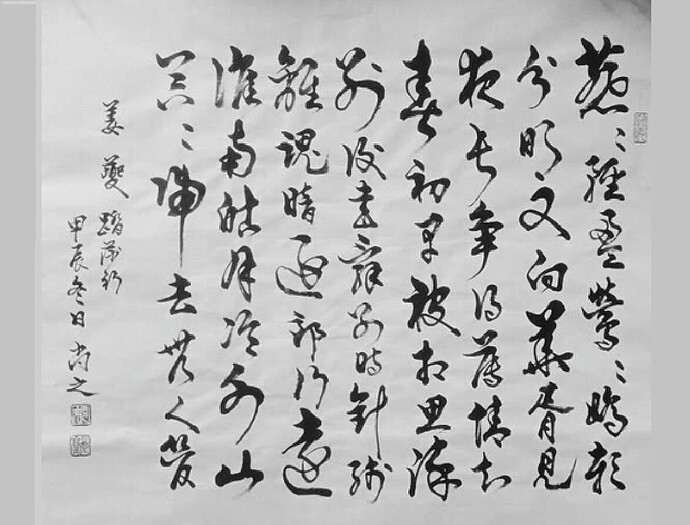 燕〻輕盈鶯〻嬌軟
分明又向華胥見
夜長爭得薄情知
春初早被相思染
別後書辭別時針線
離魂暗逐郎行遠
淮南皓月冷千山
冥〻歸去無人管
姜夔 踏莎行
甲辰冬日 尚之